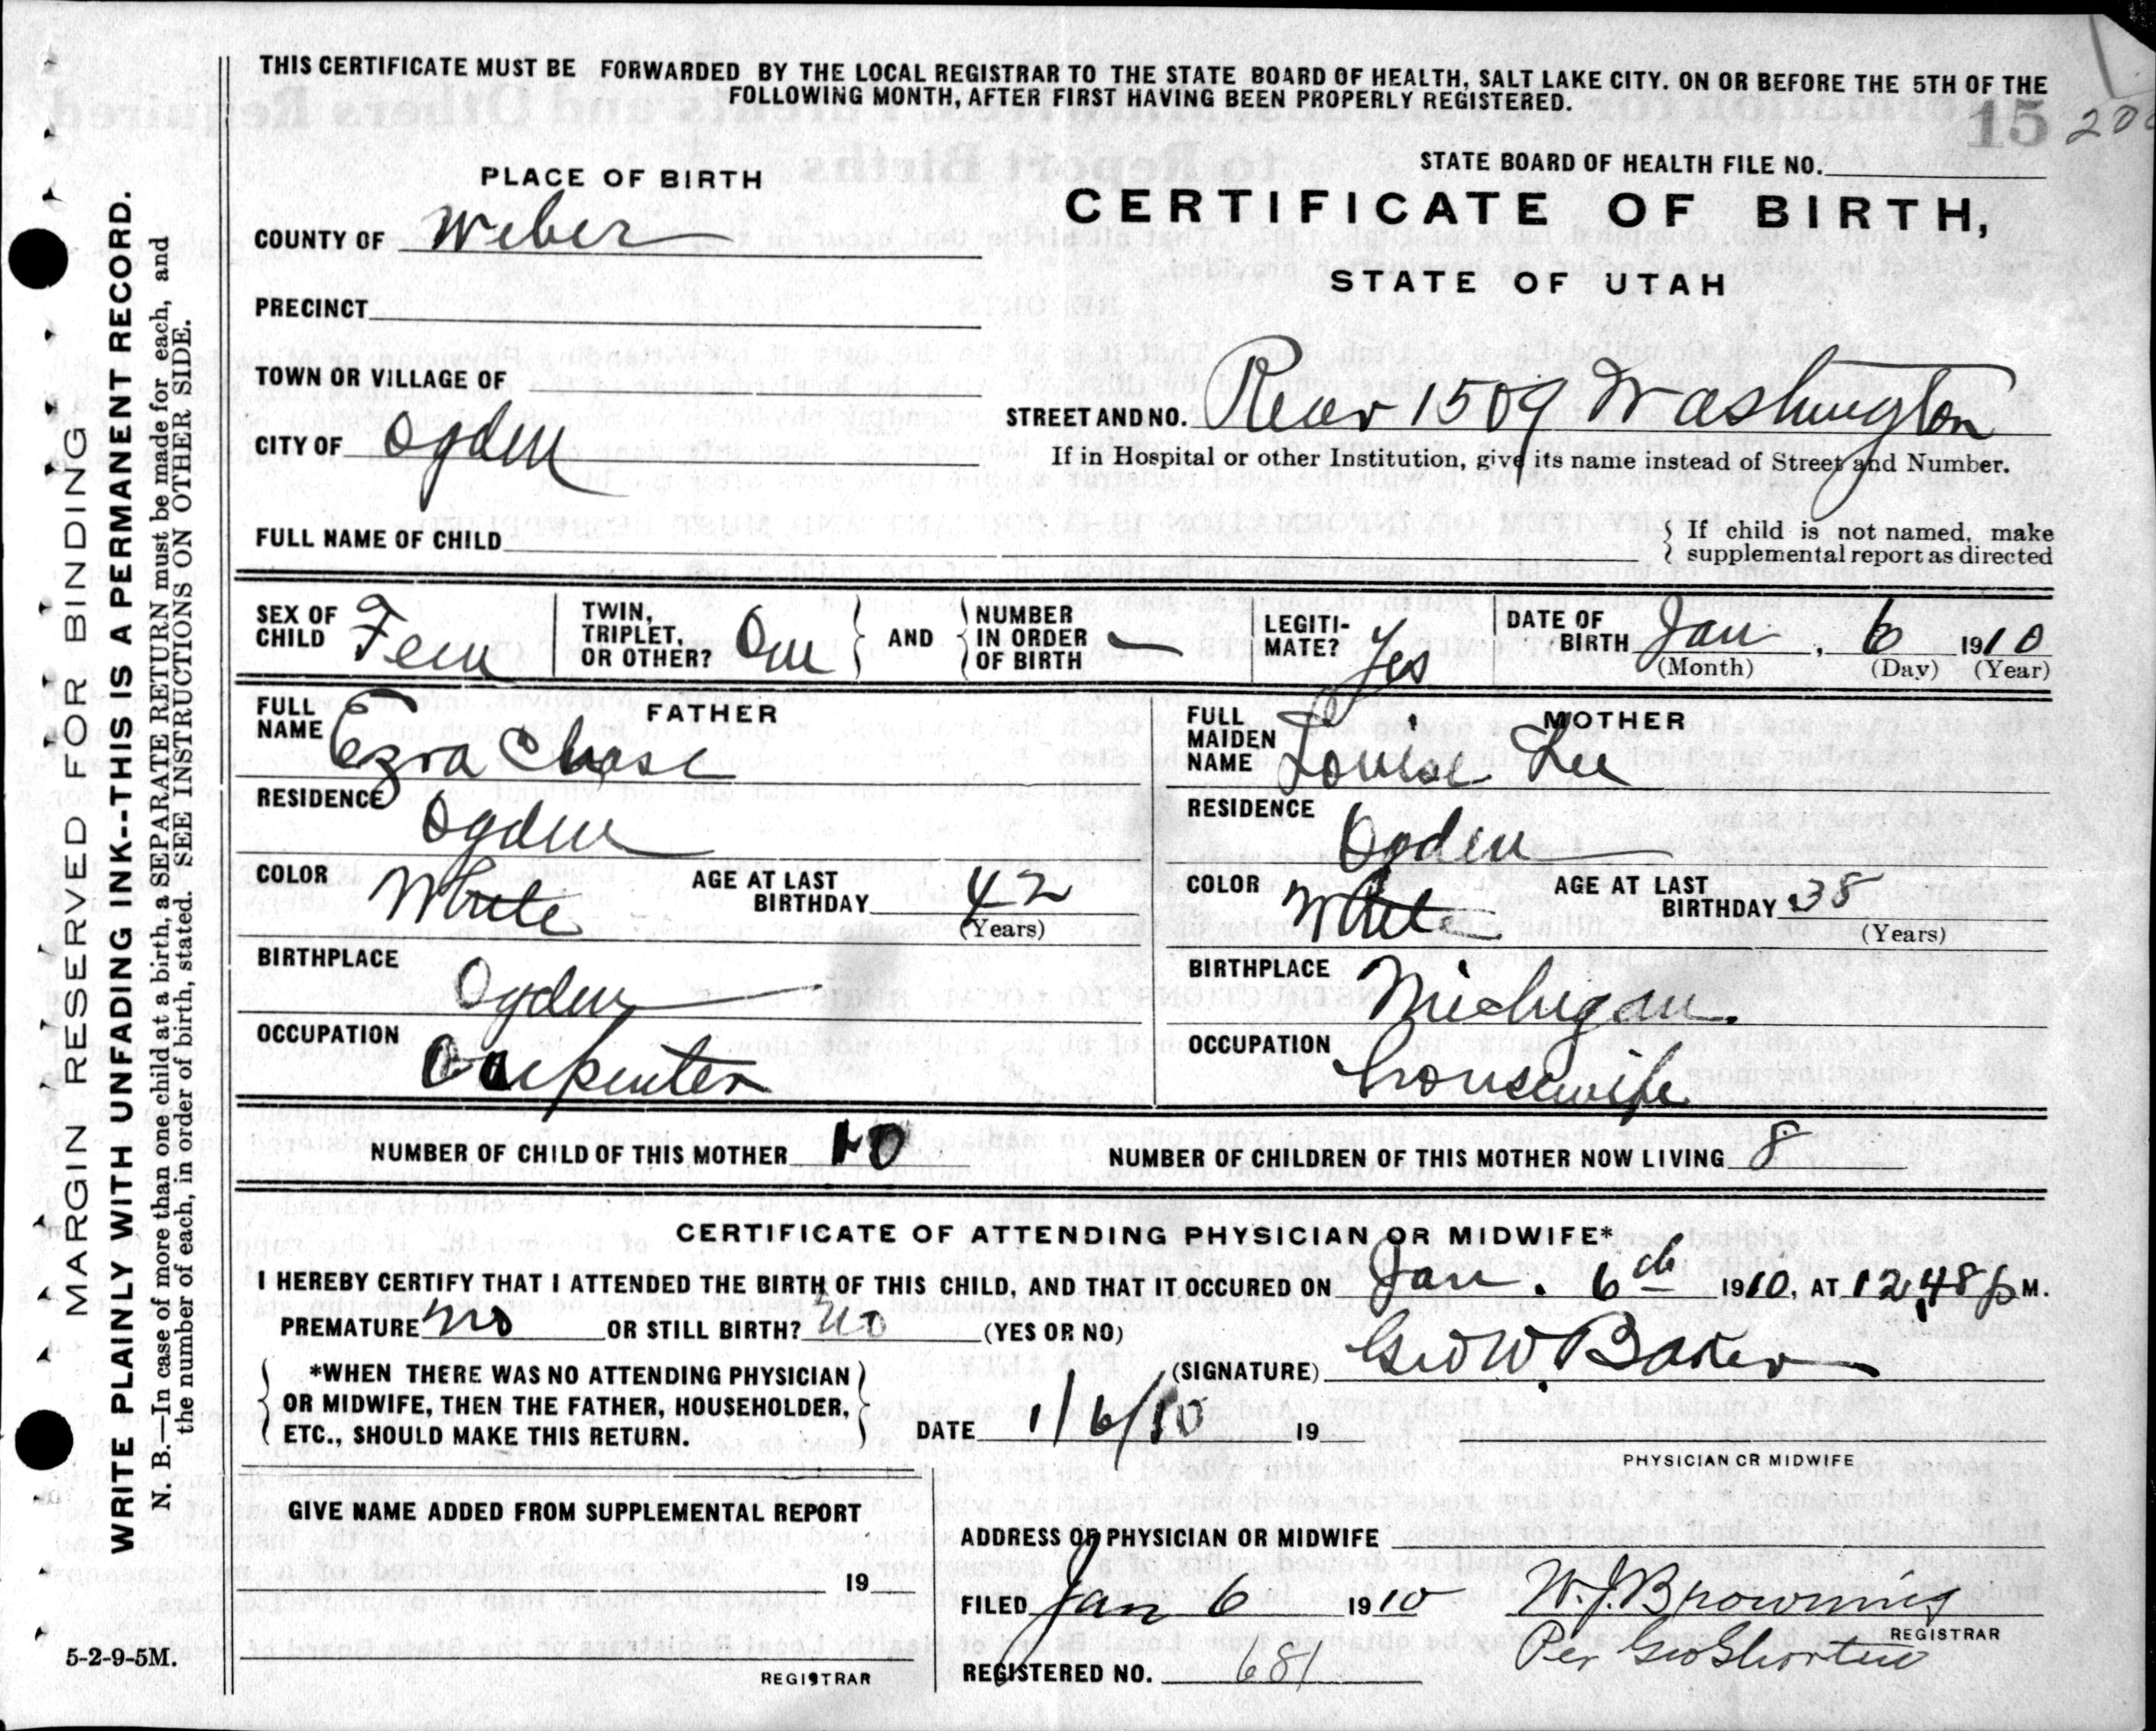 THIS CERTIFICATE MUST BE FORWARDED BY THE LOCAL REGISTRAR TO THE STATE BOARD OF HEALTH, SALT LAKE CITY. ON OR BEFORE THE 5TH OF THE
FOLLOWING MONTH, AFTER FIRST HAVING BEEN PROPERLY REGISTERED.
15
PLACE OF BIRTH
STATE BOARD OF HEALTH FILE NO.
COUNTY OF Weber
CERTIFICATE OF BIRTH,
STATE OF UTAH
PRECINCT
TOWN OR VILLAGE OF
STREET AND NO. Rear 1509 Washington
CITY OF Ogden
If in Hospital or other Institution, give its name instead of Street and Number.
FULL NAME OF CHILD
If child is not named, make
supplemental report as directed
SEX OF CHILD Fem
TWIN, TRIPLET, OR OTHER? One
AND
NUMBER IN ORDER OF BIRTH
LEGITI-MATE? Yes
DATE OF BIRTH Jan, 6 1910
(Month) (Day) (Year)
FATHER
FULL NAME Ezra Chase
RESIDENCE Ogden
COLOR White
AGE AT LAST BIRTHDAY 42
(Years)
BIRTHPLACE Ogden
OCCUPATION Carpenter
MOTHER
FULL MAIDEN NAME Louise Lee
RESIDENCE Ogden
COLOR White
AGE AT LAST BIRTHDAY 38
(Years)
BIRTHPLACE Michigan.
OCCUPATION housewife
NUMBER OF CHILD OF THIS MOTHER 10
NUMBER OF CHILDREN OF THIS MOTHER NOW LIVING 8
CERTIFICATE OF ATTENDING PHYSICIAN OR MIDWIFE*
I HEREBY CERTIFY THAT I ATTENDED THE BIRTH OF THIS CHILD, AND THAT IT OCCURED ON Jan. 6th 1910, AT 12,48 p M.
PREMATURE no OR STILL BIRTH? no (YES OR NO)
*WHEN THERE WAS NO ATTENDING PHYSICIAN
OR MIDWIFE, THEN THE FATHER, HOUSEHOLDER,
ETC., SHOULD MAKE THIS RETURN.
(SIGNATURE) Geo W. Baker
DATE 1/6/10 19
PHYSICIAN OR MIDWIFE
GIVE NAME ADDED FROM SUPPLEMENTAL REPORT
19
REGISTRAR
ADDRESS OF PHYSICIAN OR MIDWIFE
FILED Jan 6 1910 W. J. Browning
REGISTRAR
REGISTERED NO. 681 Per Geo Shorten
5-2-9-5M.
MARGIN RESERVED FOR BINDING
WRITE PLAINLY WITH UNFADING INK--THIS IS A PERMANENT RECORD.
N. B.—In case of more than one child at a birth, a SEPARATE RETURN must be made for each, and
the number of each, in order of birth, stated. SEE INSTRUCTIONS ON OTHER SIDE.